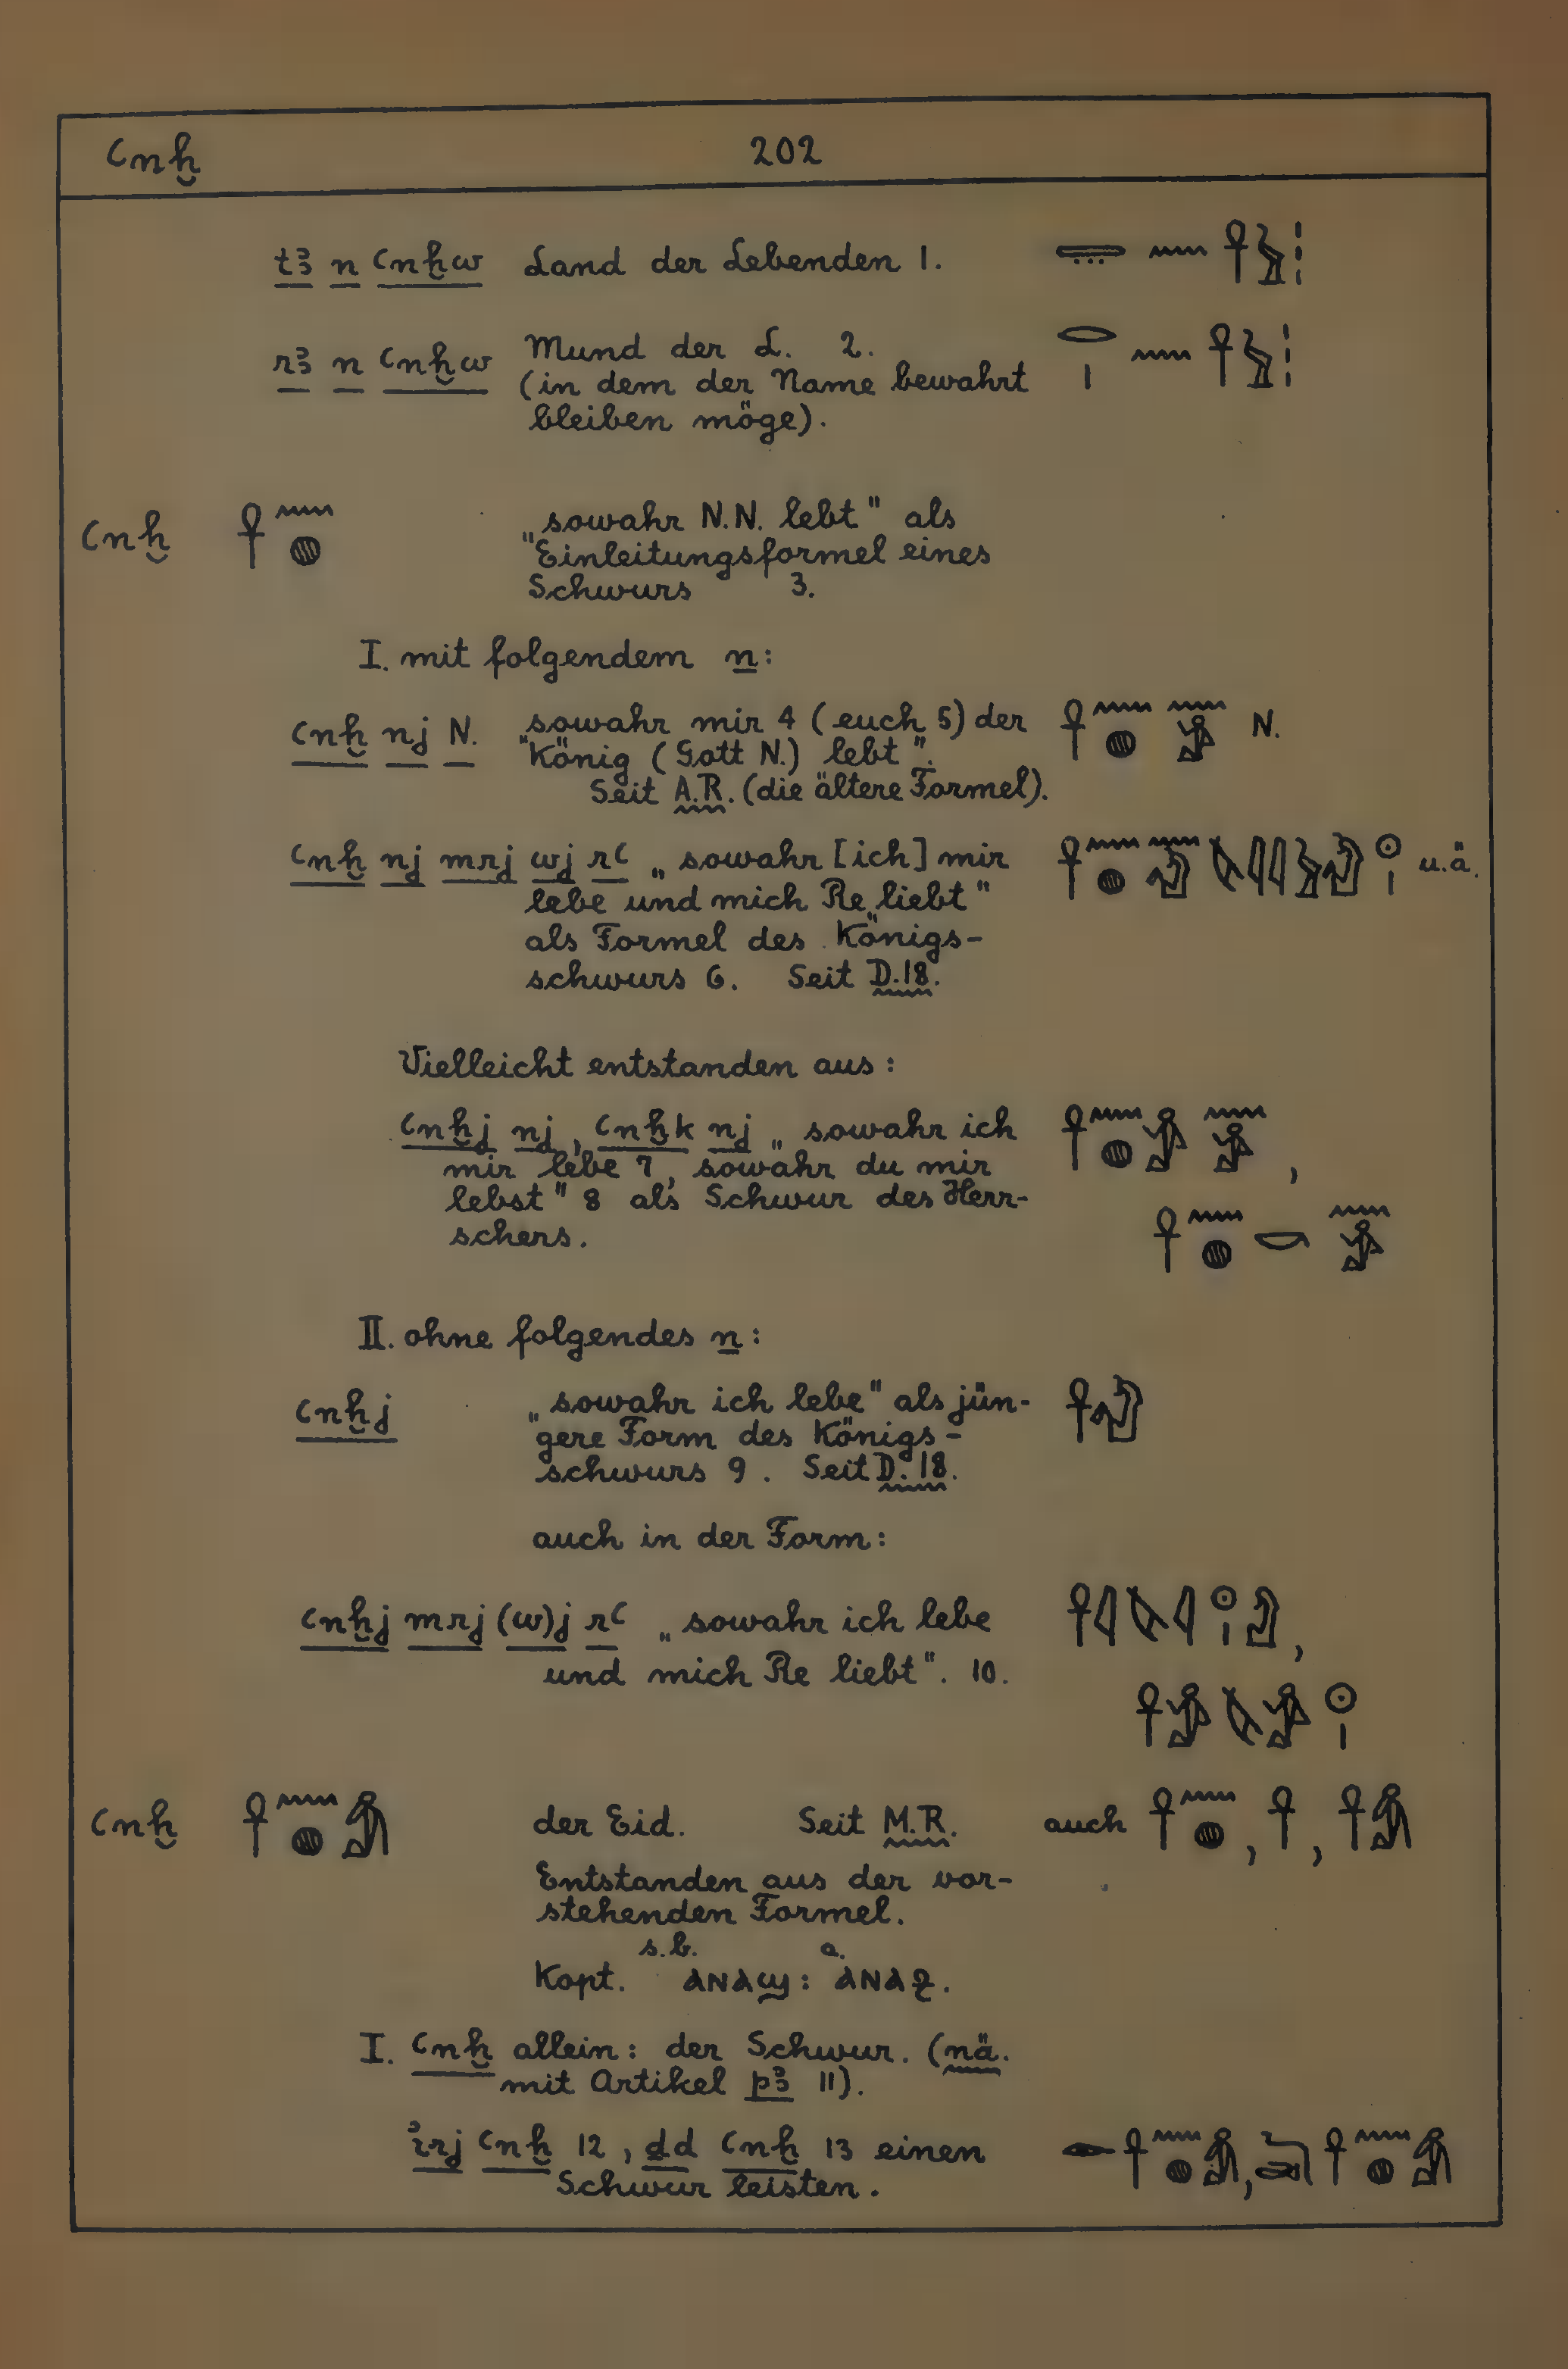 ꜥnḫ 202
tꜣ n ꜥnḫw Land der Lebenden 1. 𓇾 𓈖 𓋹𓅱𓏪
rꜣ n ꜥnḫw Mund der L. 2. 𓂋𓏤 𓈖 𓋹𓅱𓏪
(in dem der Name bewahrt
bleiben möge).
ꜥnḫ 𓋹𓈖𓐍 „sowahr N.N. lebt" als
Einleitungsformel eines
Schwurs 3.
I. mit folgendem n:
ꜥnḫ nj N. „sowahr mir 4 (euch 5) der 𓋹𓈖𓐍 𓈖𓀀 N.
König (Gott N.) lebt".
Seit A.R. (die ältere Formel).
ꜥnḫ nj mrj wj rꜥ „sowahr [ich] mir u.ä.
lebe und mich Re liebt"
als Formel des Königs-
schwurs 6. Seit D.18.
Vielleicht entstanden aus:
ꜥnḫj nj, ꜥnḫk nj „sowahr ich 𓋹𓈖𓐍𓀀 𓈖𓀀,
mir lebe 7, sowahr du mir
lebst" 8 als Schwur des Herr- 𓋹𓈖𓐍𓎡 𓈖𓀀
schers.
II. ohne folgendes n:
ꜥnḫj „sowahr ich lebe" als jün-
gere Form des Königs-
schwurs 9. Seit D.18.
auch in der Form:
ꜥnḫj mrj (w)j rꜥ „sowahr ich lebe
und mich Re liebt". 10.
𓋹𓀀𓌻𓀀𓇳𓏤
ꜥnḫ 𓋹𓈖𓐍𓀁 der Eid. Seit M.R. auch 𓋹𓈖𓐍, 𓋹, 𓋹𓀁
Entstanden aus der vor-
stehenden Formel.
s.b. a.
Kopt. ⲁⲛⲁϣ: ⲁⲛⲁⳉ.
I. ꜥnḫ allein: der Schwur. (nä.
mit Artikel pꜣ 11).
ı͗rj ꜥnḫ 12, ḏd ꜥnḫ 13 einen 𓁹𓋹𓈖𓐍𓀁, 𓆓𓂧 𓋹𓈖𓐍𓀁
Schwur leisten.